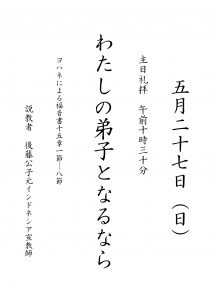 五月二十七日(日)
主日礼拝 午前十時三十分
わたしの弟子となるなら
ヨハネによる福音書十五章一節―八節
説教者 後藤公子元インドネシア宣教師